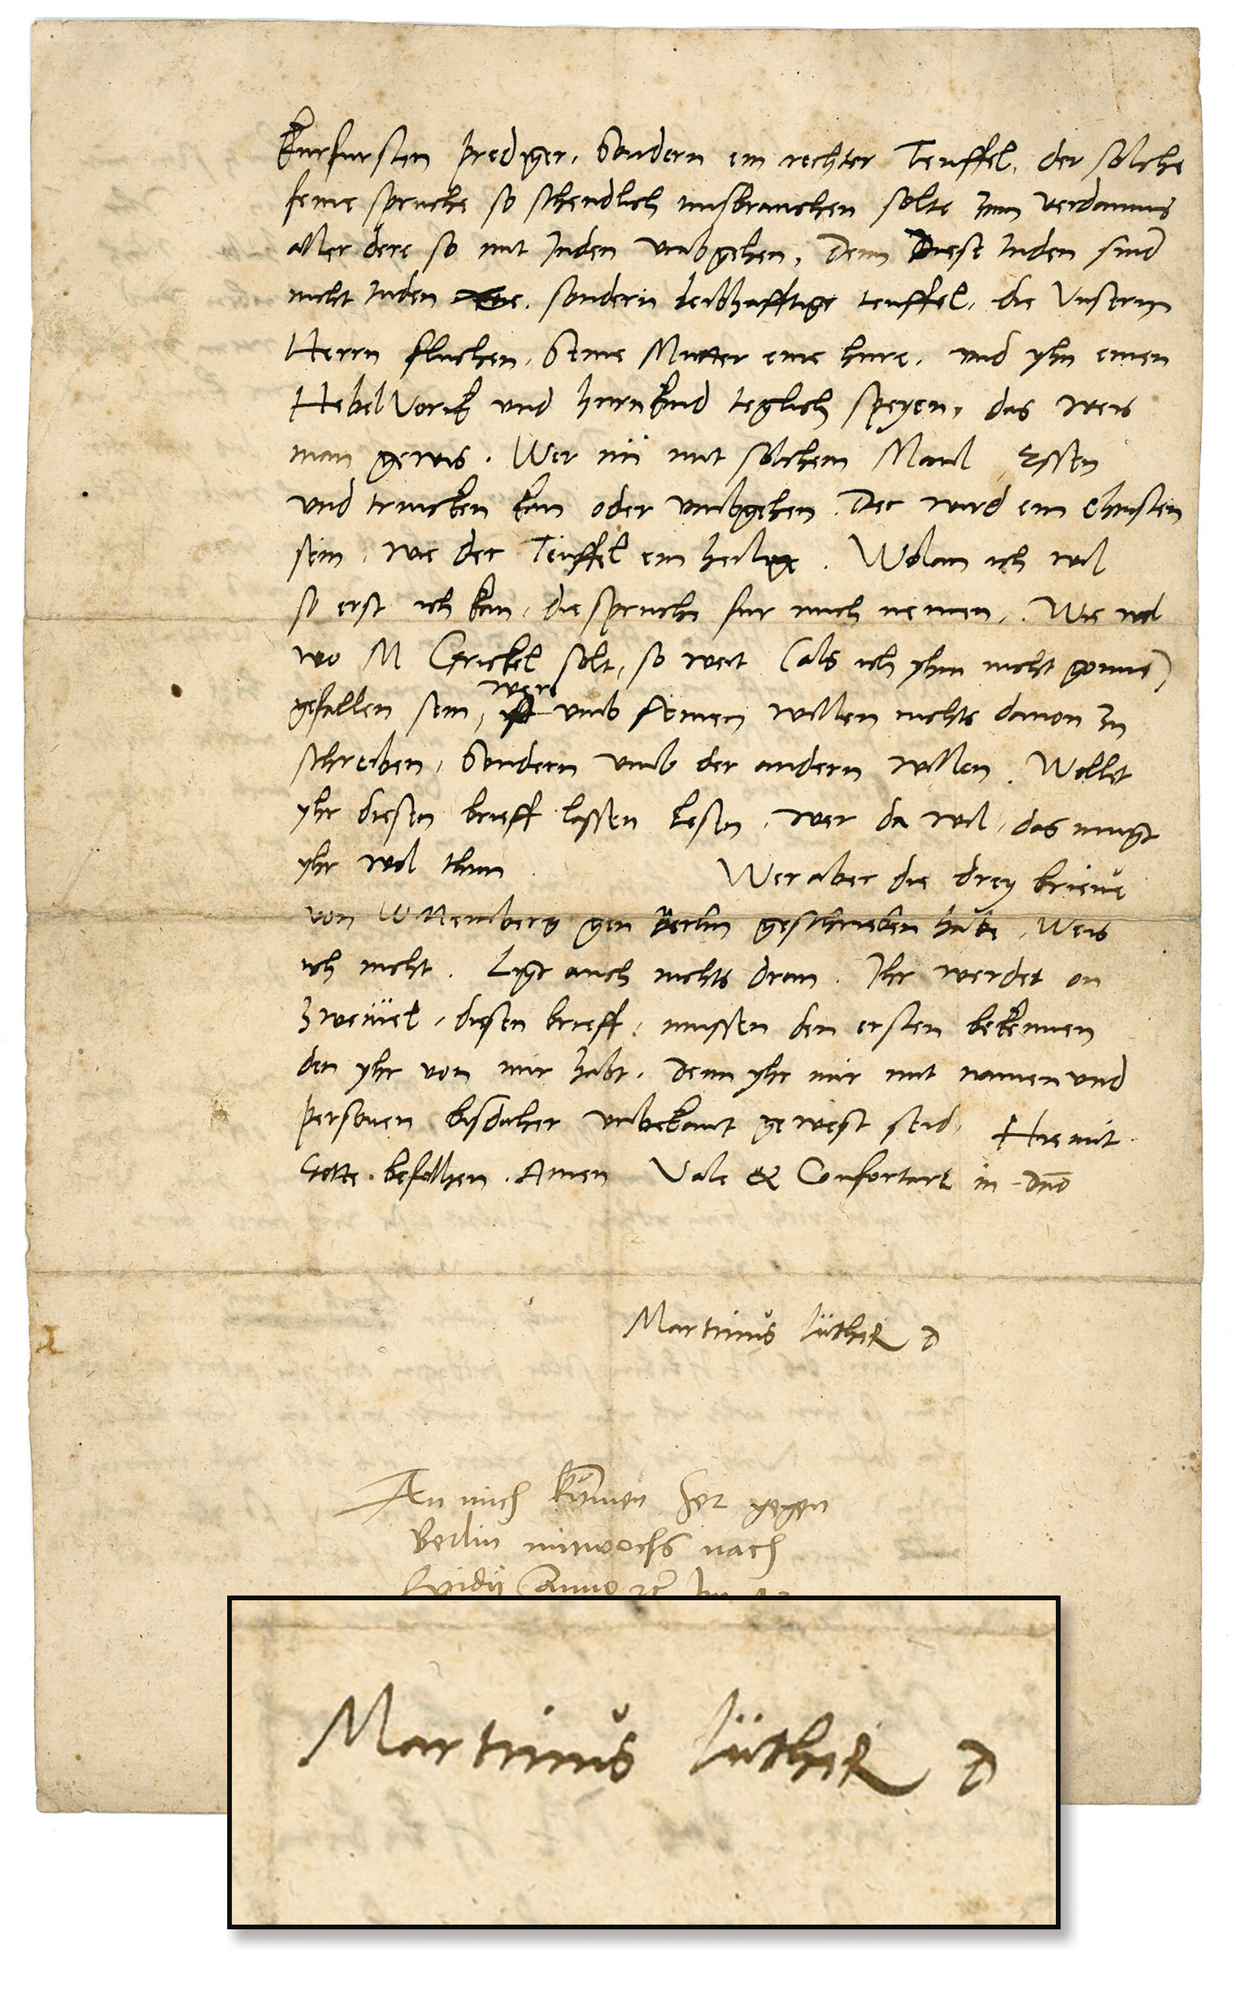 Kurfursten prediger, Sondern ein rechter Teuffel, der solche
feine spruche so schendlich misbrauchen solte zum verdamnis
aller dere so mit Juden umbgehen, Denn Diese Juden sind
nicht Juden sondern leibhafftige teuffel, die Unsern
Herrn fluchen, Seine Mutter eine hure, und yhn einen
Hebel Vorik und hurnkind teglich speyen, das weis
man gewis. Wer nu mit solchem Maul Essen
und trincken kan oder umbgehen Der wird ein Christen
sein, wie der Teuffel ein heilige. Wolan ich wil
so erst ich kan, die spruche fur mich nemen, Wie wol
wo M Grickel solt, so weit (als ich yhm nicht gonne)
gefallen sein, were umb seinen willen nichts davon zu
schreiben, Sondern umb der andern willen. Wollet
yhr diesen brieff lassen Lesen, wer da wil, das mugt
yhr wol thun. Wer aber die drey brieve
von Wittemberg gen Berlin geschrieben habe, Weis
ich nicht. Ligt auch nichts dran. Ihr werdet on
zweivel, diesen brieff, mussen den ersten bekennen
den yhr von mir habt, Denn yhr mir mit namen und
personen bisdaher unbekant gewest seid, Hiemit
Gotte befolhen. Amen Vale & Confortare in dno
Martinus Lüther D
An mich kumen her gegen
Berlin mitwochs nach
Egidii Anno
Martinus Lüther D